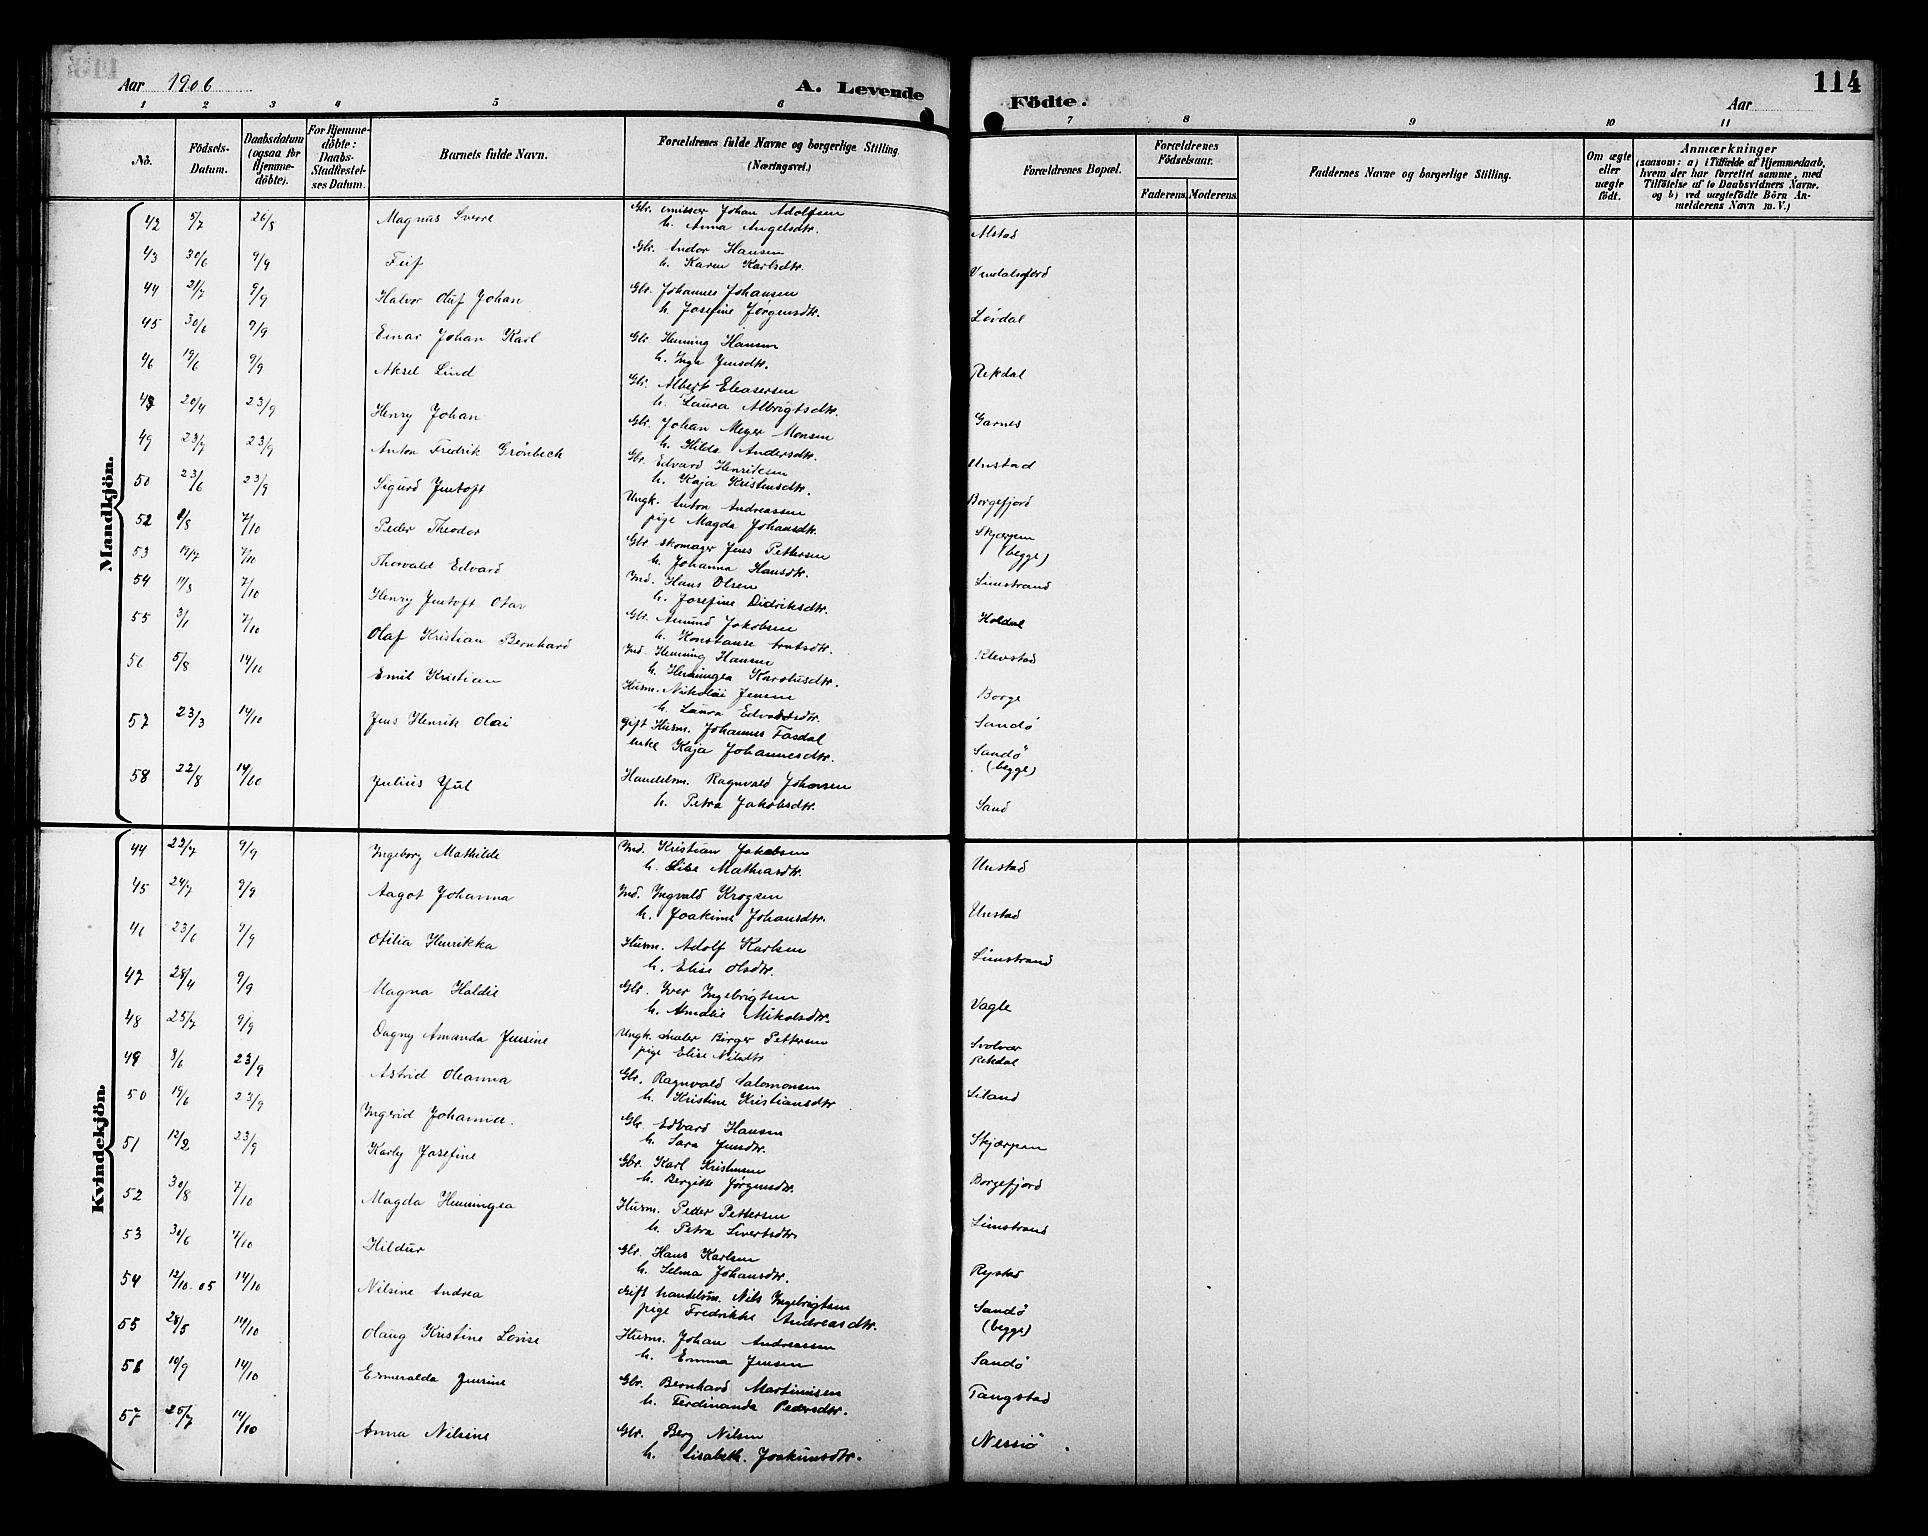 Aar 1906
A. Levende
Födte.
Aar
114
1 2 3 4 5 6 7 8 9 10 11
Nö.
Födsels-
Datum.
Daabsdatum
(ogsaa for
Hjemme-
döbte).
For Hjemme-
döbte:
Daabs-
Stadfestel-
ses Datum.
Barnets fulde Navn.
Forældrenes fulde Navne og borgerlige Stilling
(Næringsvei.)
Forældrenes Bopæl.
Forældrenes
Födselsaar.
Faderens. Moderens.
Faddernes Navne og borgerlige Stilling.
Om ægte
eller
uægte
födt.
Anmærkninger
(saasom: a) i Tilfælde af Hjemmedaab,
hvem der har forrettet samme, med
Tilföielse af to Daabsvidners Navne.
og b) ved uægtefödte Börn An-
melderens Navn m. V.)
Mandkjön.
42 5/7 26/8 Magnus Sverre Gbr. emissær Johan Adolfsen Alstad
h. Anna Angelsdtr.
43 30/6 9/9 Gbr. Andor Hansen Vendalsfjord
h. Karen Karlsdtr.
44 21/7 9/9 Halvor Oluf Johan Gbr. Johannes Johansen Løvdal
h. Josefine Jørgensdtr.
45 30/6 9/9 Einar Johan Karl Gbr. Henning Hansen Rekdal
h. Inga Jensdtr.
46 19/6 9/9 Aksel Lind Gbr. Albert Eleasersen Garnes
h. Laura Albrigtsdtr.
48 20/4 23/9 Henry Johan Gbr. Johan Meyer Monsen Unstad
h. Hilda Andersdtr.
49 23/7 23/9 Anton Fredrik Grönbech Gbr. Edvard Henriksen Borgefjord
h. Kaja Kristensdtr.
50 23/6 23/9 Sigurd Jentoft Ungk. Anton Andreassen Skjerpen
pige Magda Johansdtr. (begge)
52 /8 7/10 Peder Theodor Gbr. skomager Jens Pettersen Limstrand
h. Johanna Hansdtr.
53 19/7 7/10 Thorvald Edvard Ind. Hans Olsen Holdal
h. Josefine Didriksdtr.
54 11/8 7/10 Henry Jentoft Otar Gbr. Amund Jakobsen Klevstad
h. Konstanse Arntsdtr.
55 3/1 7/10 Olaf Kristian Bernhard Ind. Henning Hansen Borge
h. Henningea Karolusdtr.
56 5/8 14/10 Emil Kristian Husm. Nikolai Jensen Sandö
h. Laura Edvardsdtr.
57 23/3 14/10 Jens Henrik Olai gift Husm. Johannes Fasdal Sandö
enke Kaja Johannesdtr. (begge)
58 22/8 14/10 Julius Jul Handelsm. Ragnvald Johansen Sand
h. Petra Jakobsdtr.
Kvindekjön.
44 22/7 9/9 Ingeborg Mathilde Ind. Kristian Jakobsen Unstad
h. Lise Mathiasdtr.
45 24/7 9/9 Aagot Johanna Ind. Ingvald Krogsen Unstad
h. Joakime Johansdtr.
46 23/6 9/9 Otilia Henrikka Husm. Adolf Karlsen Limstrand
h. Elise Olsdtr.
47 28/4 9/9 Magna Haldis Gbr. Iver Ingebrigtsen Vagle
h. Amalie Mikalsdtr.
48 25/7 9/9 Dagny Amanda Jensine Ungk. maler Birger Pettersen Svolvær
pige Elise Nilsdtr Rekdal
49 8/6 23/9 Astrid Oleanna Gbr. Ragnvald Salomonsen Liland
h. Kristine Kristiansdtr
50 19/6 23/9 Ingerid Johanna. Gbr. Edvard Hansen Skjærpen
h. Sara Jensdtr.
51 12/2 23/9 Karly Josefine Gbr. Karl Kristensen Borgefjord
h. Bergitte Jørgensdtr.
52 30/8 7/10 Magda Henningea Husm. Peder Pettersen Limstrand
h. Petra Sivertsdtr.
53 30/6 7/10 Hildur Gbr. Hans Karlsen Rystad
h. Selma Johansdtr.
54 12/10.05 14/10 Nilsine Andrea Gift handelsm. Nils Ingebrigtsen Sandö
pige Fredrikke Andreasdtr. (begge)
55 28/5 14/10 Olaug Kristine Lovise Husm. Johan Andreassen Sandö
h. Emma Jensen
56 10/9 14/10 Esmeralda Jensine Gbr. Bernhard Martinisen Tangstad
h. Ferdinanda Pedersdtr.
57 25/7 14/10 Anna Nilsine Gbr. Berg Nilsen Nessiö.
h. Lisabeth. Joakimsdtr.